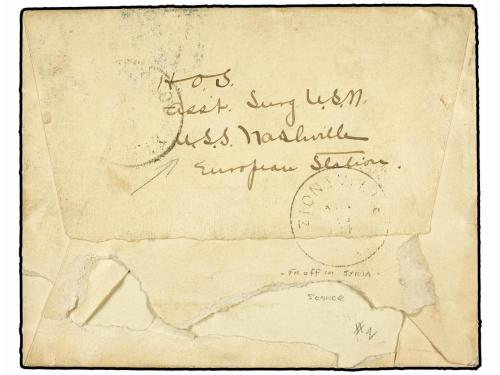 H.O.S.
Asst. Surg U.S.N.
U.S.S. Nashville
European Station.
ZIONSVILLE
OFF IN SYRIA -
SCARCE